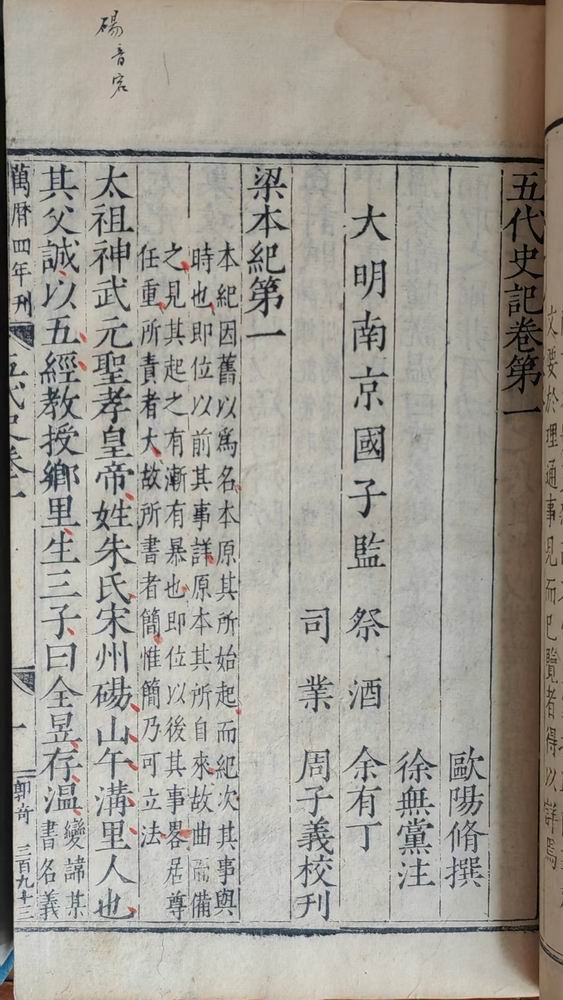 碭音宕
文要於理通事見而已覽者得以詳焉
五代史記卷第一
歐陽脩撰
徐無黨注
大明南京國子監祭酒余有丁
司業周子義校刊
梁本紀第一
本紀因舊以爲名本原其所始起而紀次其事與
時也即位以前其事詳原本其所自來故曲而備
之見其起之有漸有暴也即位以後其事畧居尊
任重所責者大故所書者簡惟簡乃可立法
太祖神武元聖孝皇帝姓朱氏宋州碭山午溝里人也
其父誠以五經教授鄉里生三子曰全昱存溫
變諱某
書名義
萬曆四年刊
五代史卷一
一
郭奇
三百九十三